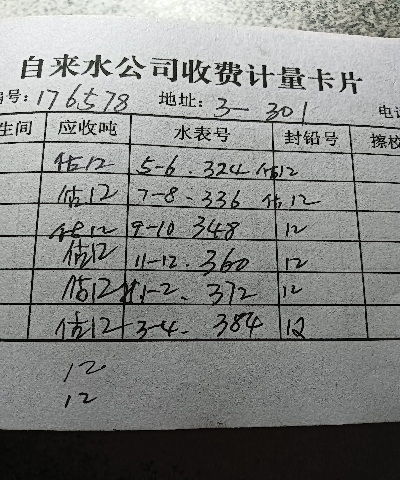 自来水公司收费计量卡片
编号: 176578 地址: 3-301 电话
生间 应收吨 水表号 封铅号 擦校
估12 5-6. 324 估12
估12 7-8. 336 估12
估12 9-10 348 12
估12 11-12. 360 12
估12 1-2. 372 12
估12 3-4. 384 12
12
12